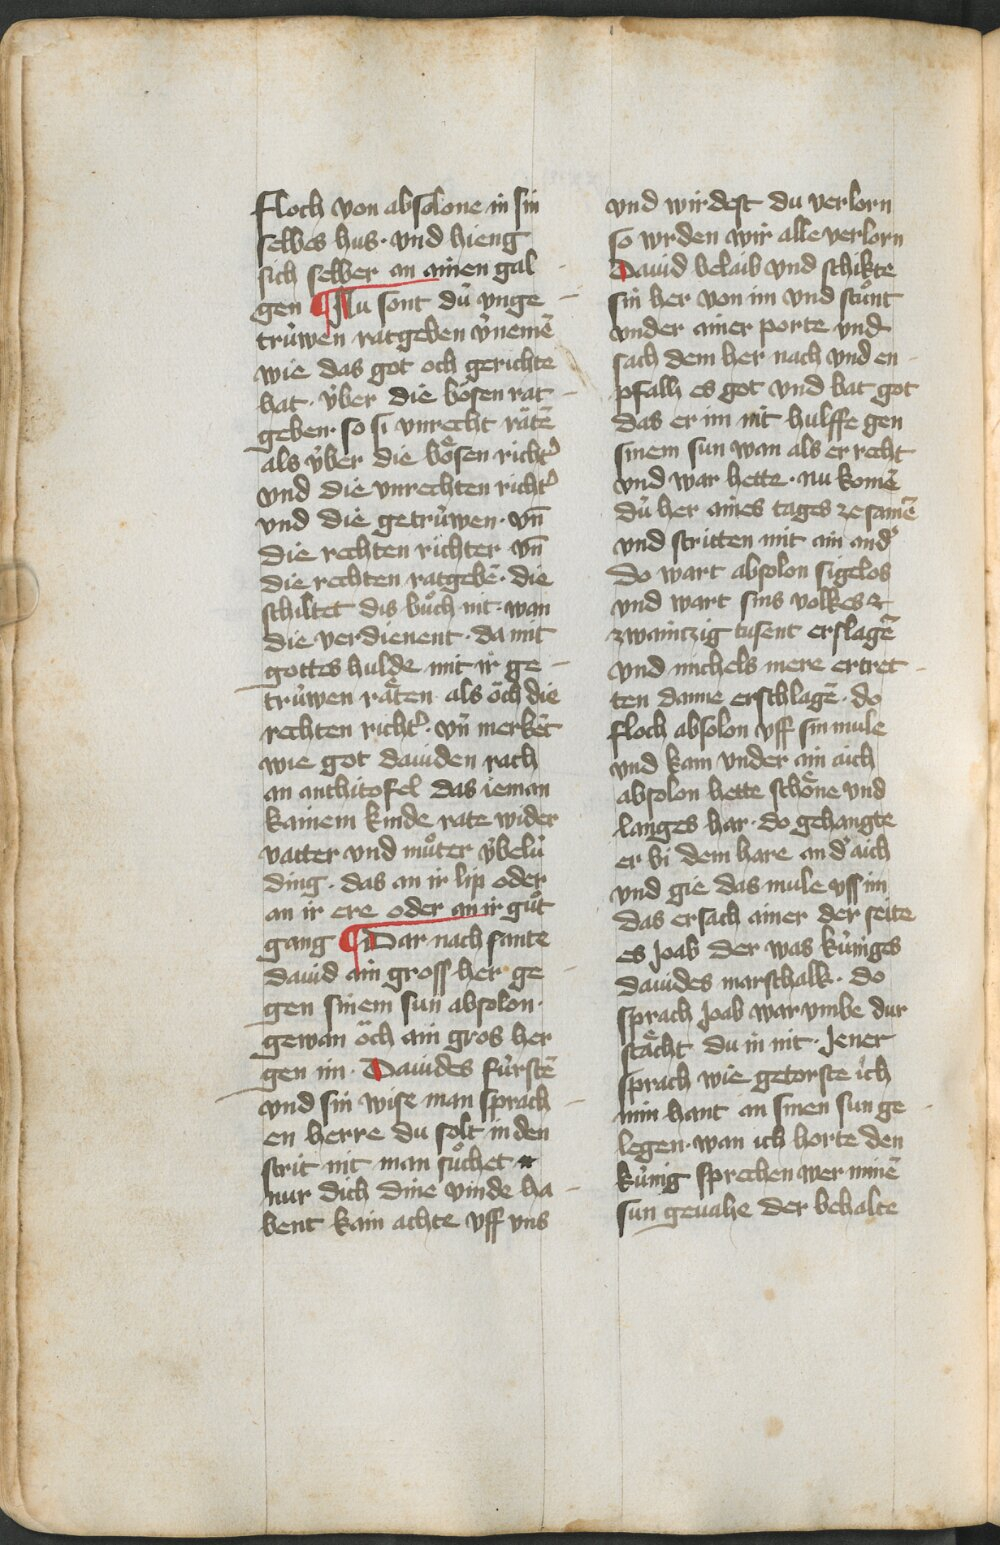 floch von absolone in sin
selbes hus · vnd hieng
sich selber an ainen gal
gen ¶ Nu sont dú vnge
trúwen ratgeben v̓nemē
wie das got och gerichte
hat · v́ber die boͤsen rat
geben · so si vnrecht raͤtē
als v́ber die boͤsen richt᾽
vnd die vnrechten richt᾽
vnd die getrúwen · vn̄
die rechten richter vn̄
die rechten ratgebē · die
schiltet dis buͦch nit · wan
die verdienent · da mit
gottes hulde mit ir ge
trúwen raͤten als o͗ch die
rechten richt᾽ · vn̄ merkēt
wie got dauiden rach
an anthitofel das ieman
kainem kinde rate wider
vatter vnd muͦter v́belú
ding · das an ir lip oder
an ir ere oder an ir guͦt
gang ¶ Dar nach sante
dauid ain gross her ge
gen sinem sun absolon ·
gewan o͗ch ain gros her
gen im · Dauides fúrstē
vnd sin wise man sprach
en herre du solt in den
strit nit man suͦchet
nur dich dine vinde ha
bent kain achte vff vns
vnd wirdest du verlorn
so wrden wir alle verlorn
Dauid belaib vnd schikte
sin her von im vnd stuͦnt
vnder ainer porte vnd
sach dem her nach vnd en
pfalh es got vnd bat got
das er im nit hulffe gen
sinem sun wan als er recht
vnd war hette · nu komē
dú her aines tages zesamē
vnd stritten mit ain and᾽
do wart absolon sigelos
vnd wart sins volkes
zwaintzig tusent erslagē
vnd michels mere ertret
ten danne erschlagē · do
floch absolon vff sin mule
vnd kam vnder ain aich
absolon hette schoͤne vnd
langes har · do gehangte
er bi dem hare an d᾽ aich
vnd gie das mule vss im
das ersach ainer der seite
es joab der was kúniges
dauides marschalk · do
sprach joab war vmbe dur
staͤcht du in nit · Jener
sprach wie getorste ich
min hant an sinen sun ge
legen · wan ich horte den
kúnig sprechen wer minē
sun geuahe der behalte